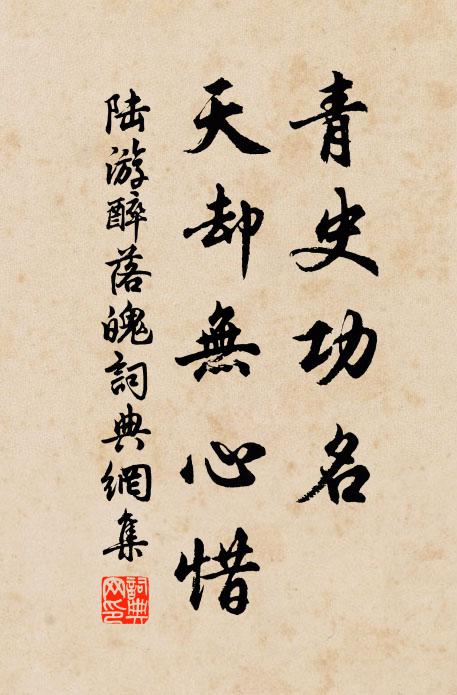 青史功名
天却無心惜
陆游醉落魄詞典網集
詞典网印